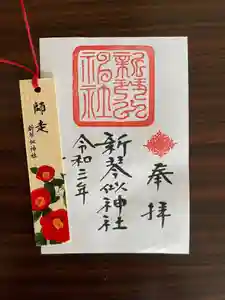 奉拝
新琴似神社
令和三年
新琴似神社
師走
新琴似神社